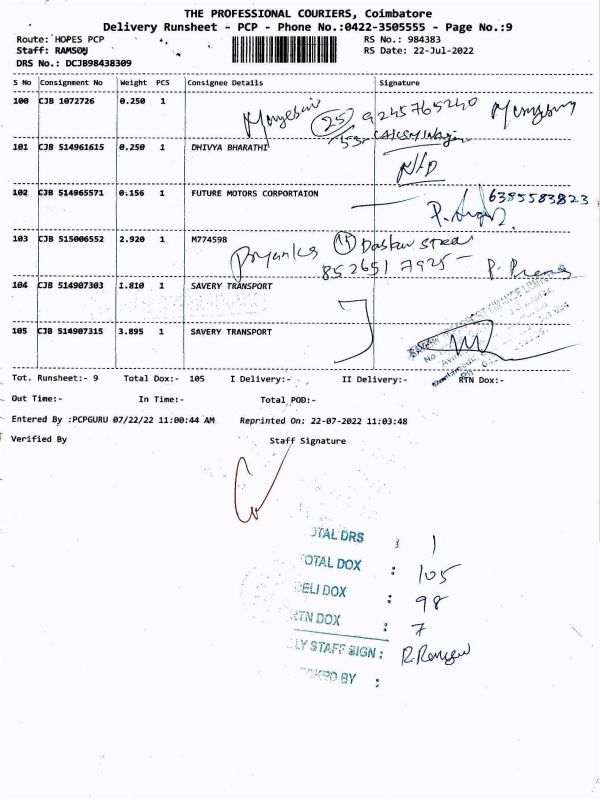 THE PROFESSIONAL COURIERS, Coimbatore
Delivery Runsheet - PCP - Phone No.:0422-3505555 - Page No.:9
Route: HOPES PCP RS No.: 984383
Staff: RAMSON RS Date: 22-Jul-2022
DRS No.: DCJB98438309
S No Consignment No Weight PCS Consignee Details Signature
100 CJB 1072726 0.250 1
25 9245765240
101 CJB 514961615 0.250 1 DHIVYA BHARATHI
N/D
102 CJB 514965571 0.156 1 FUTURE MOTORS CORPORTAION 6385583823
103 CJB 515006552 2.920 1 M774598
Priyanka
852651 7925 P. Prema
104 CJB 514907303 1.810 1 SAVERY TRANSPORT
105 CJB 514907315 3.895 1 SAVERY TRANSPORT
Tot. Runsheet:- 9 Total Dox:- 105 I Delivery:- II Delivery:- RTN Dox:-
Out Time:- In Time:- Total POD:-
Entered By :PCPGURU 07/22/22 11:00:44 AM Reprinted On: 22-07-2022 11:03:48
Verified By Staff Signature
OTAL DRS : 1
OTAL DOX : 105
DELI DOX : 98
RTN DOX : 7
LY STAFF SIGN :
BY :